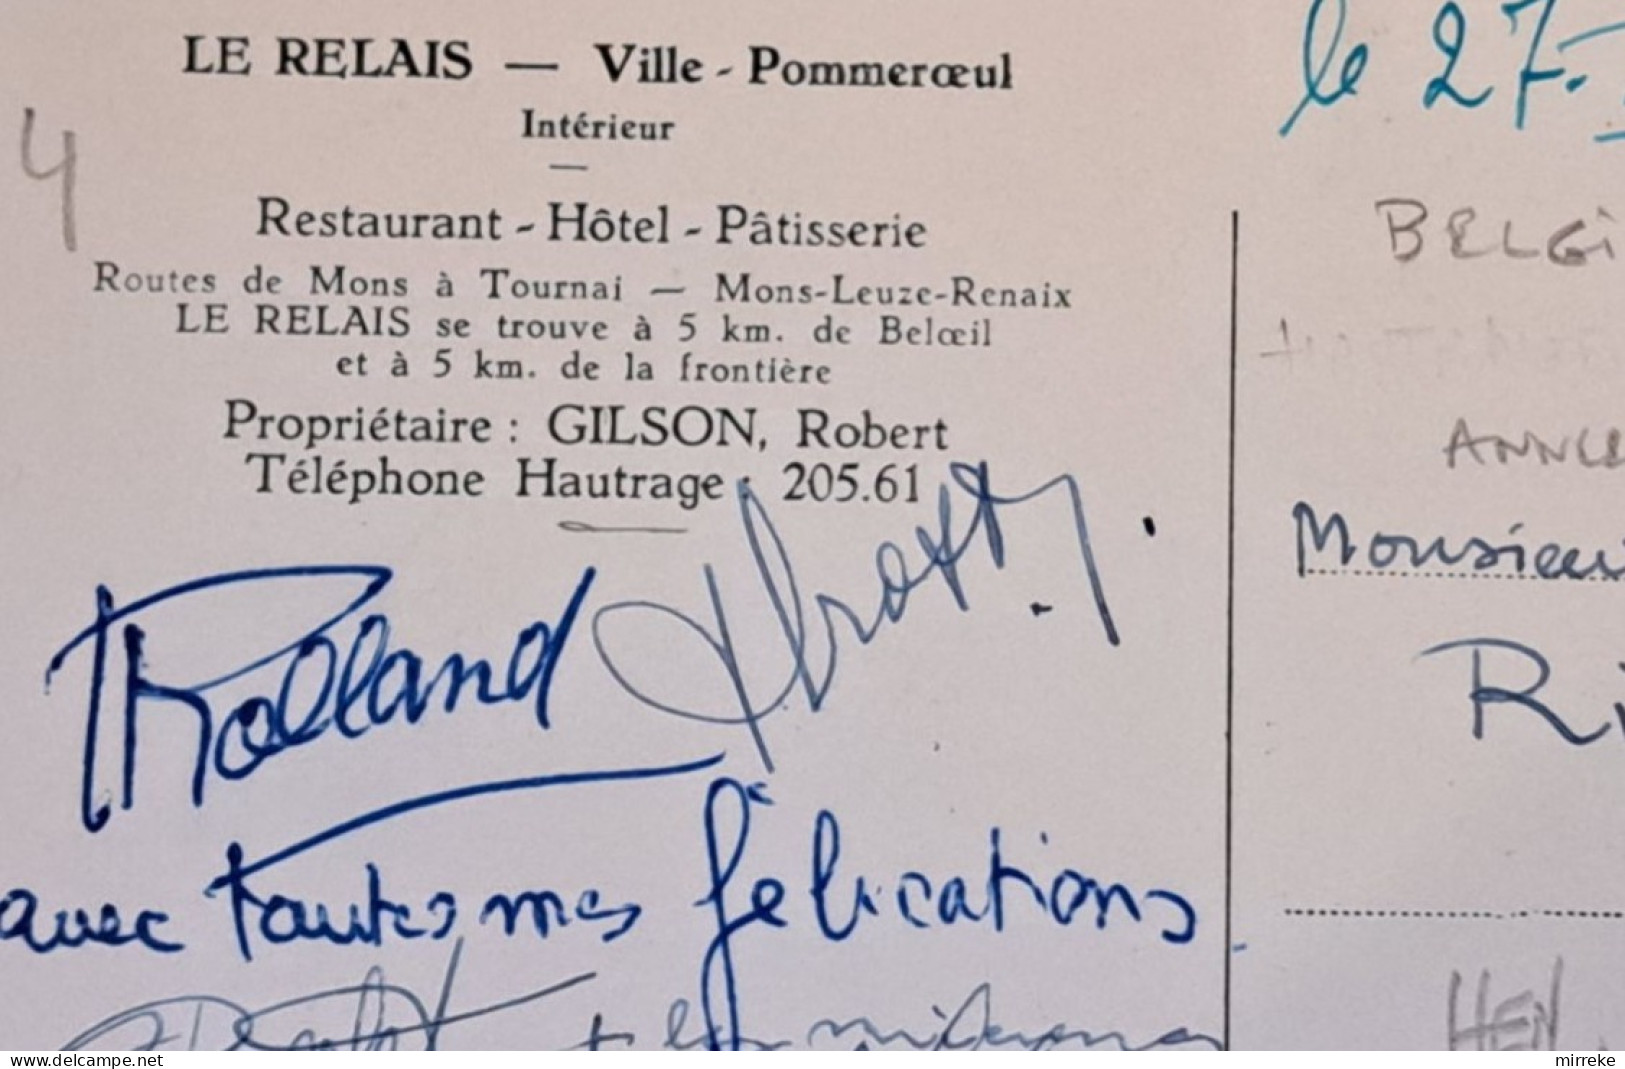 LE RELAIS — Ville - Pommerœul
Intérieur
Restaurant - Hôtel - Pâtisserie
Routes de Mons à Tournai — Mons-Leuze-Renaix
LE RELAIS se trouve à 5 km. de Belœil
et à 5 km. de la frontière
Propriétaire : GILSON, Robert
Téléphone Hautrage : 205.61
4
Rolland
avec toutes mes félications
le 27-
BELGI
ANNEE
Monsieur
Ri
HEN
www.delcampe.net
mirreke